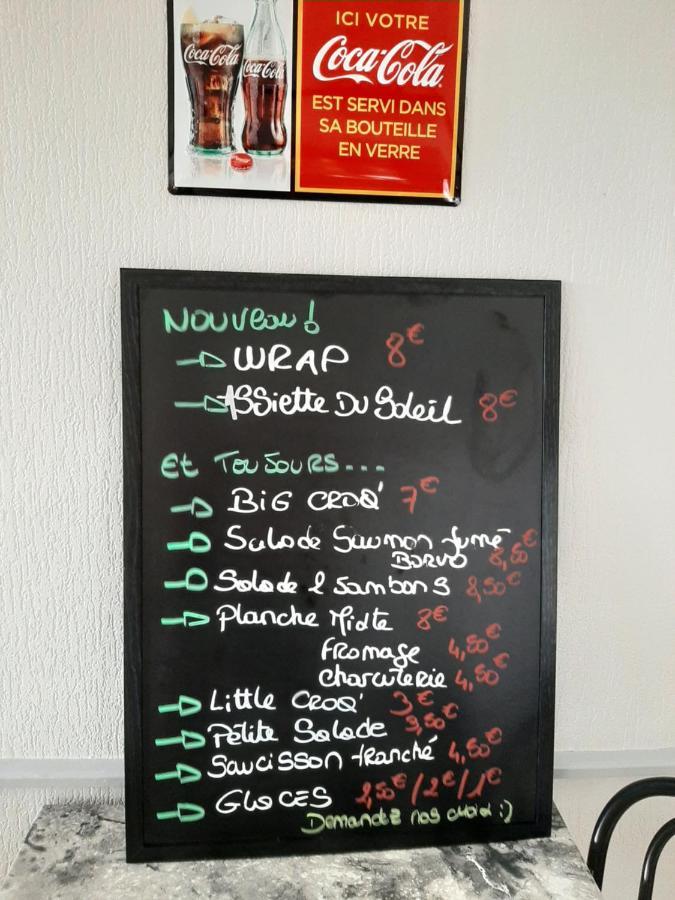 ICI VOTRE
Coca-Cola
EST SERVI DANS
SA BOUTEILLE
EN VERRE
Coca-Cola
Coca-Cola
NOUVEAU!
WRAP 8€
ASSiette DU Soleil 8€
Et TOUJOURS...
BiG CROQ' 7€
Salade Saumon fumé
BORVO 8,50€
Salade 2 Jambons 8,50€
Planche Mixte 8€
fromage 4,50€
charcuterie 4,50€
Little CROQ' 3€
Petite Salade 3,50€
SauciSSON tranché 4,50€
GLACES 2,50€/2€/1€
Demandez nos choix :)